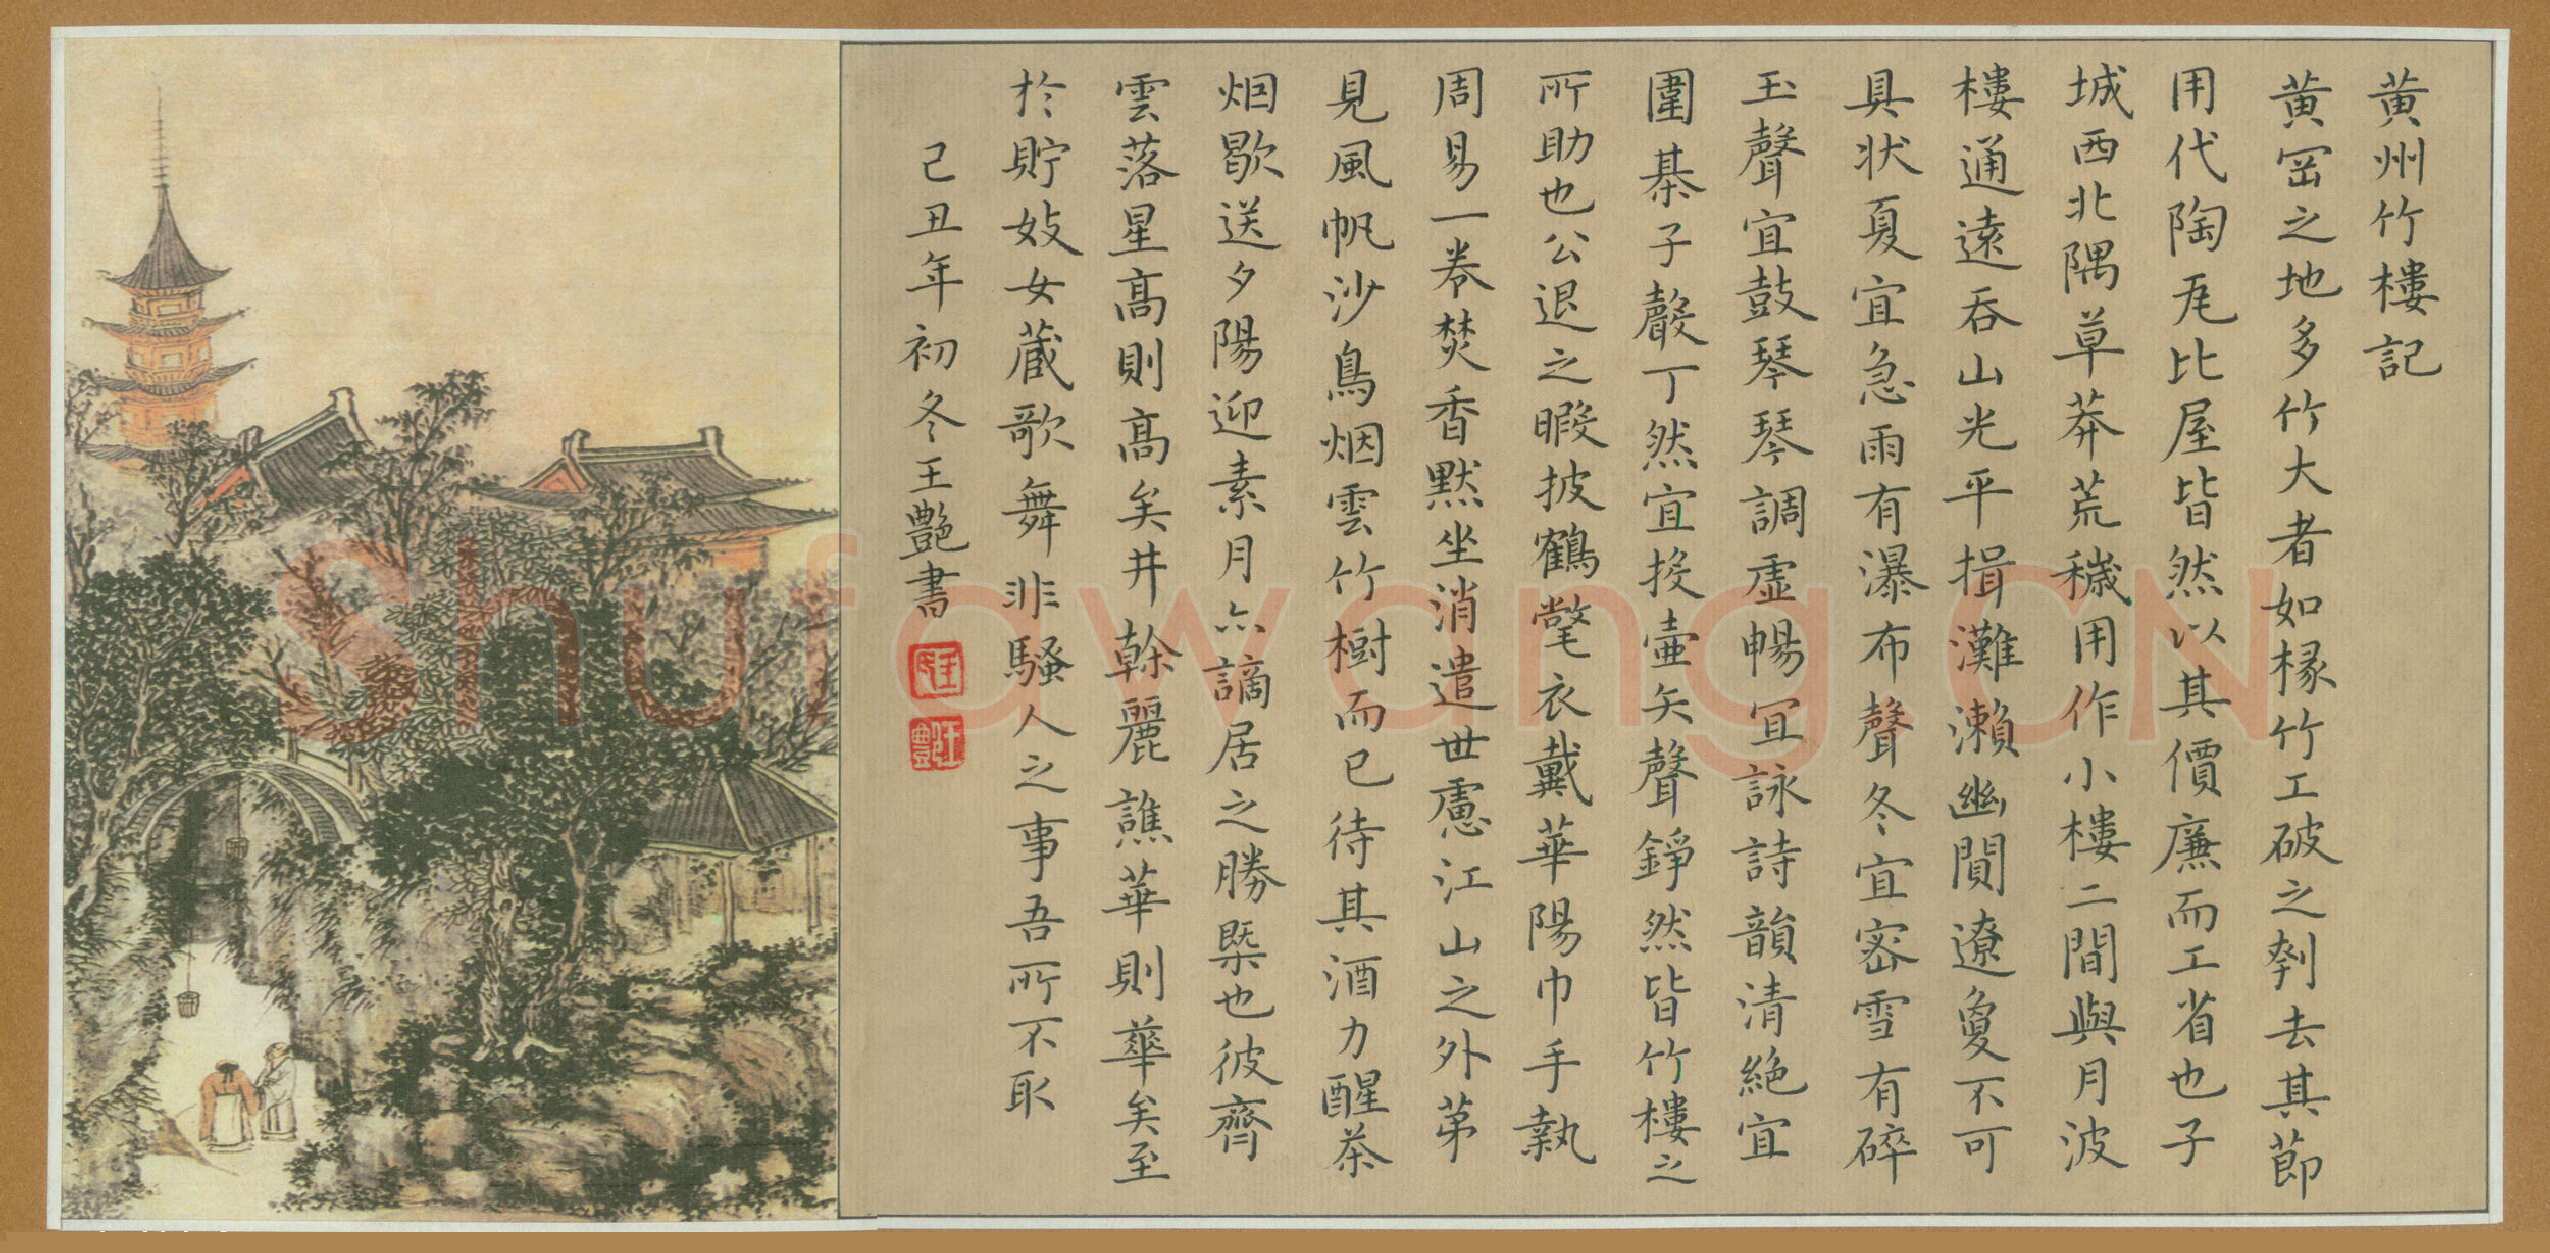 黃州竹樓記
黃岡之地多竹大者如椽竹工破之刳去其節
用代陶瓦比屋皆然以其價廉而工省也子
城西北隅草莽荒穢用作小樓二間與月波
樓通遠吞山光平揖灘瀨幽闃遼敻不可
具狀夏宜急雨有瀑布聲冬宜密雪有碎
玉聲宜鼓琴琴調虛暢宜詠詩詩韻清絕宜
圍棊子聲丁然宜投壺矢聲錚然皆竹樓之
所助也公退之暇披鶴氅衣戴華陽巾手執
周易一卷焚香默坐消遣世慮江山之外第
見風帆沙鳥烟雲竹樹而已待其酒力醒茶
烟歇送夕陽迎素月亦謫居之勝槩也彼齊
雲落星高則高矣井幹麗譙華則華矣至
於貯妓女藏歌舞非騷人之事吾所不取
己丑年初冬王艷書
Shufawang.CN